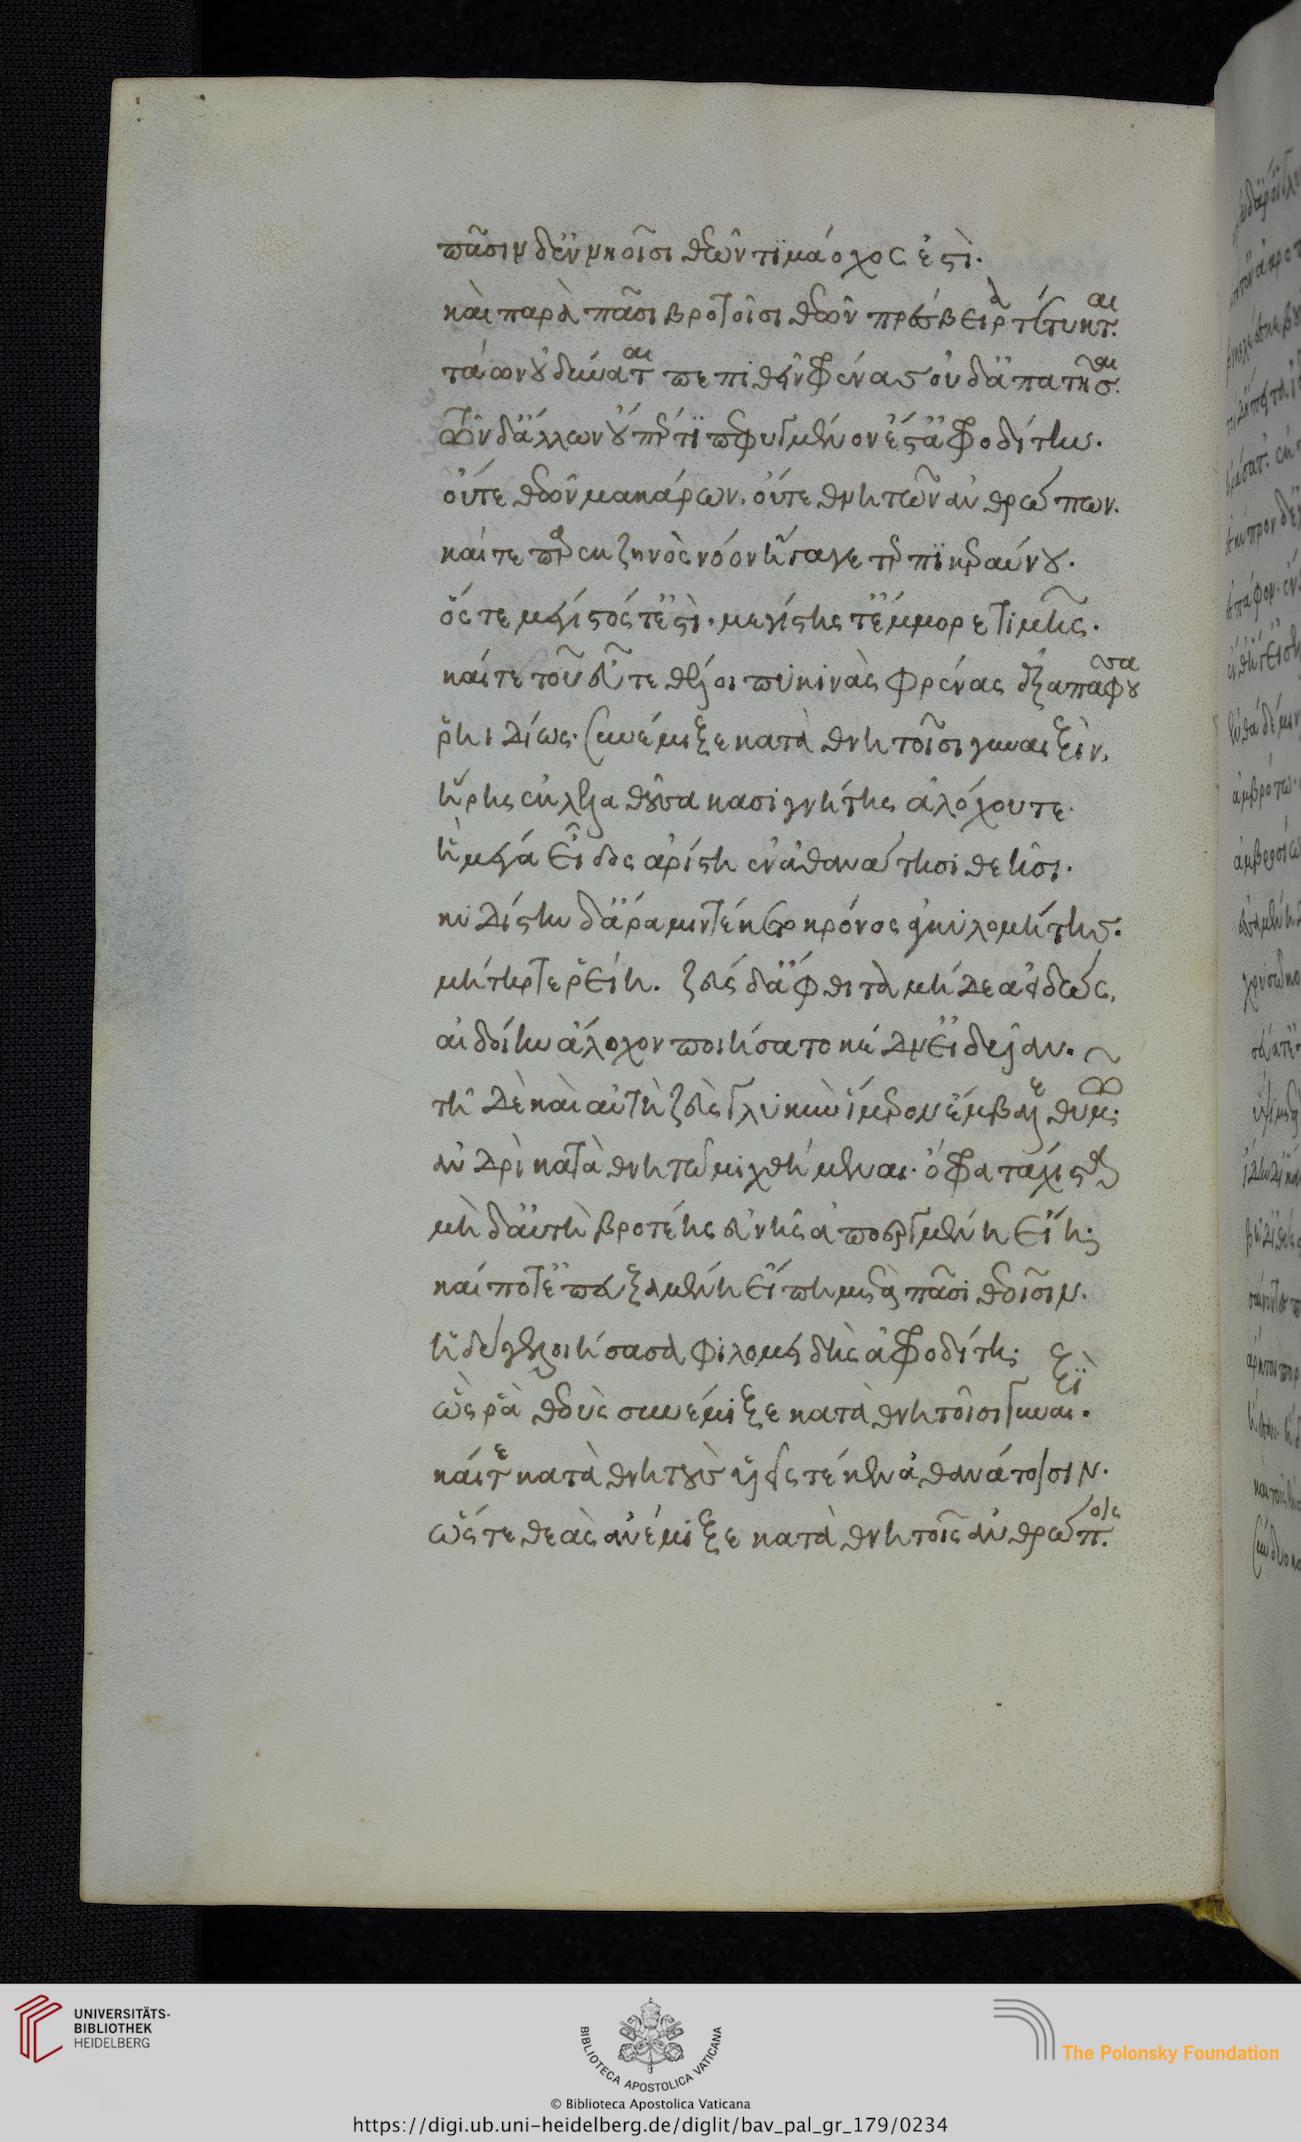 πᾶσιν δ' ἐν νηοῖσι θεῶν τιμάοχος ἐστὶ.
καὶ παρὰ πᾶσι βροτοῖσι θεῶν πρέσβειρα τέτυκται.
τάων οὐ δύναται πεπιθεῖν φρένας οὐδ' ἀπατῆσαι.
τῶν δ' ἄλλων οὔπέρ τι πεφυγμένον ἔστ' ἀφροδίτην.
οὔτε θεῶν μακάρων. οὔτε θνητῶν ἀνθρώπων.
καί τε παρὲκ ζηνὸς νόον ἤγαγε τερπικεραύνου.
ὅς τε μέγιστός τ' ἐστὶ. μεγίστης τ' ἔμμορε τιμῆς.
καί τε τοῦ εὖτε θέλοι πυκινὰς φρένας ἐξαπαφοῦσα
ῥηιδίως. συνέμιξε καταθνητοῖσι γυναιξὶν.
ἥρης ἐκλελαθοῦσα κασιγνήτης ἀλόχου τε.
ἣ μέγα εἶδος ἀρίστη ἐν ἀθανάτησι θεῆσι.
κυδίστην δ' ἄρα μιν τέκετο κρόνος ἀγκυλομήτης.
μήτηρ τε ῥείη. ζεὺς δ' ἄφθιτα μήδεα εἰδὼς.
αἰδοίην ἄλοχον ποιήσατο κέδν' εἰδεῖαν.
τῇ δὲ καὶ αὐτῇ ζεὺς γλυκὺν ἵμερον ἔμβαλε θυμῷ.
ἀνδρὶ καταθνητῷ μιχθήμεναι. ὄφρα τάχιστα
μὴ δ' αὐτὴ βροτέης εὐνῆς ἀποεργμένη εἴη.
καί ποτ' ἐπευξαμένη εἴπη μετὰ πᾶσι θεοῖσιν.
ἡδὺ γελοιήσασα φιλομειδὴς ἀφροδίτη.
ὥς ῥα θεοὺς συνέμιξε καταθνητοῖσι γυναιξί.
καί τε καταθνητοὺς υἱεῖς τέκεν ἀθανάτοισιν.
ὥς τε θεὰς ἀνέμιξε καταθνητοῖς ἀνθρώποις.
UNIVERSITÄTS-
BIBLIOTHEK
HEIDELBERG
BIBLIOTECA APOSTOLICA VATICANA
The Polonsky Foundation
© Biblioteca Apostolica Vaticana
https://digi.ub.uni-heidelberg.de/diglit/bav_pal_gr_179/0234